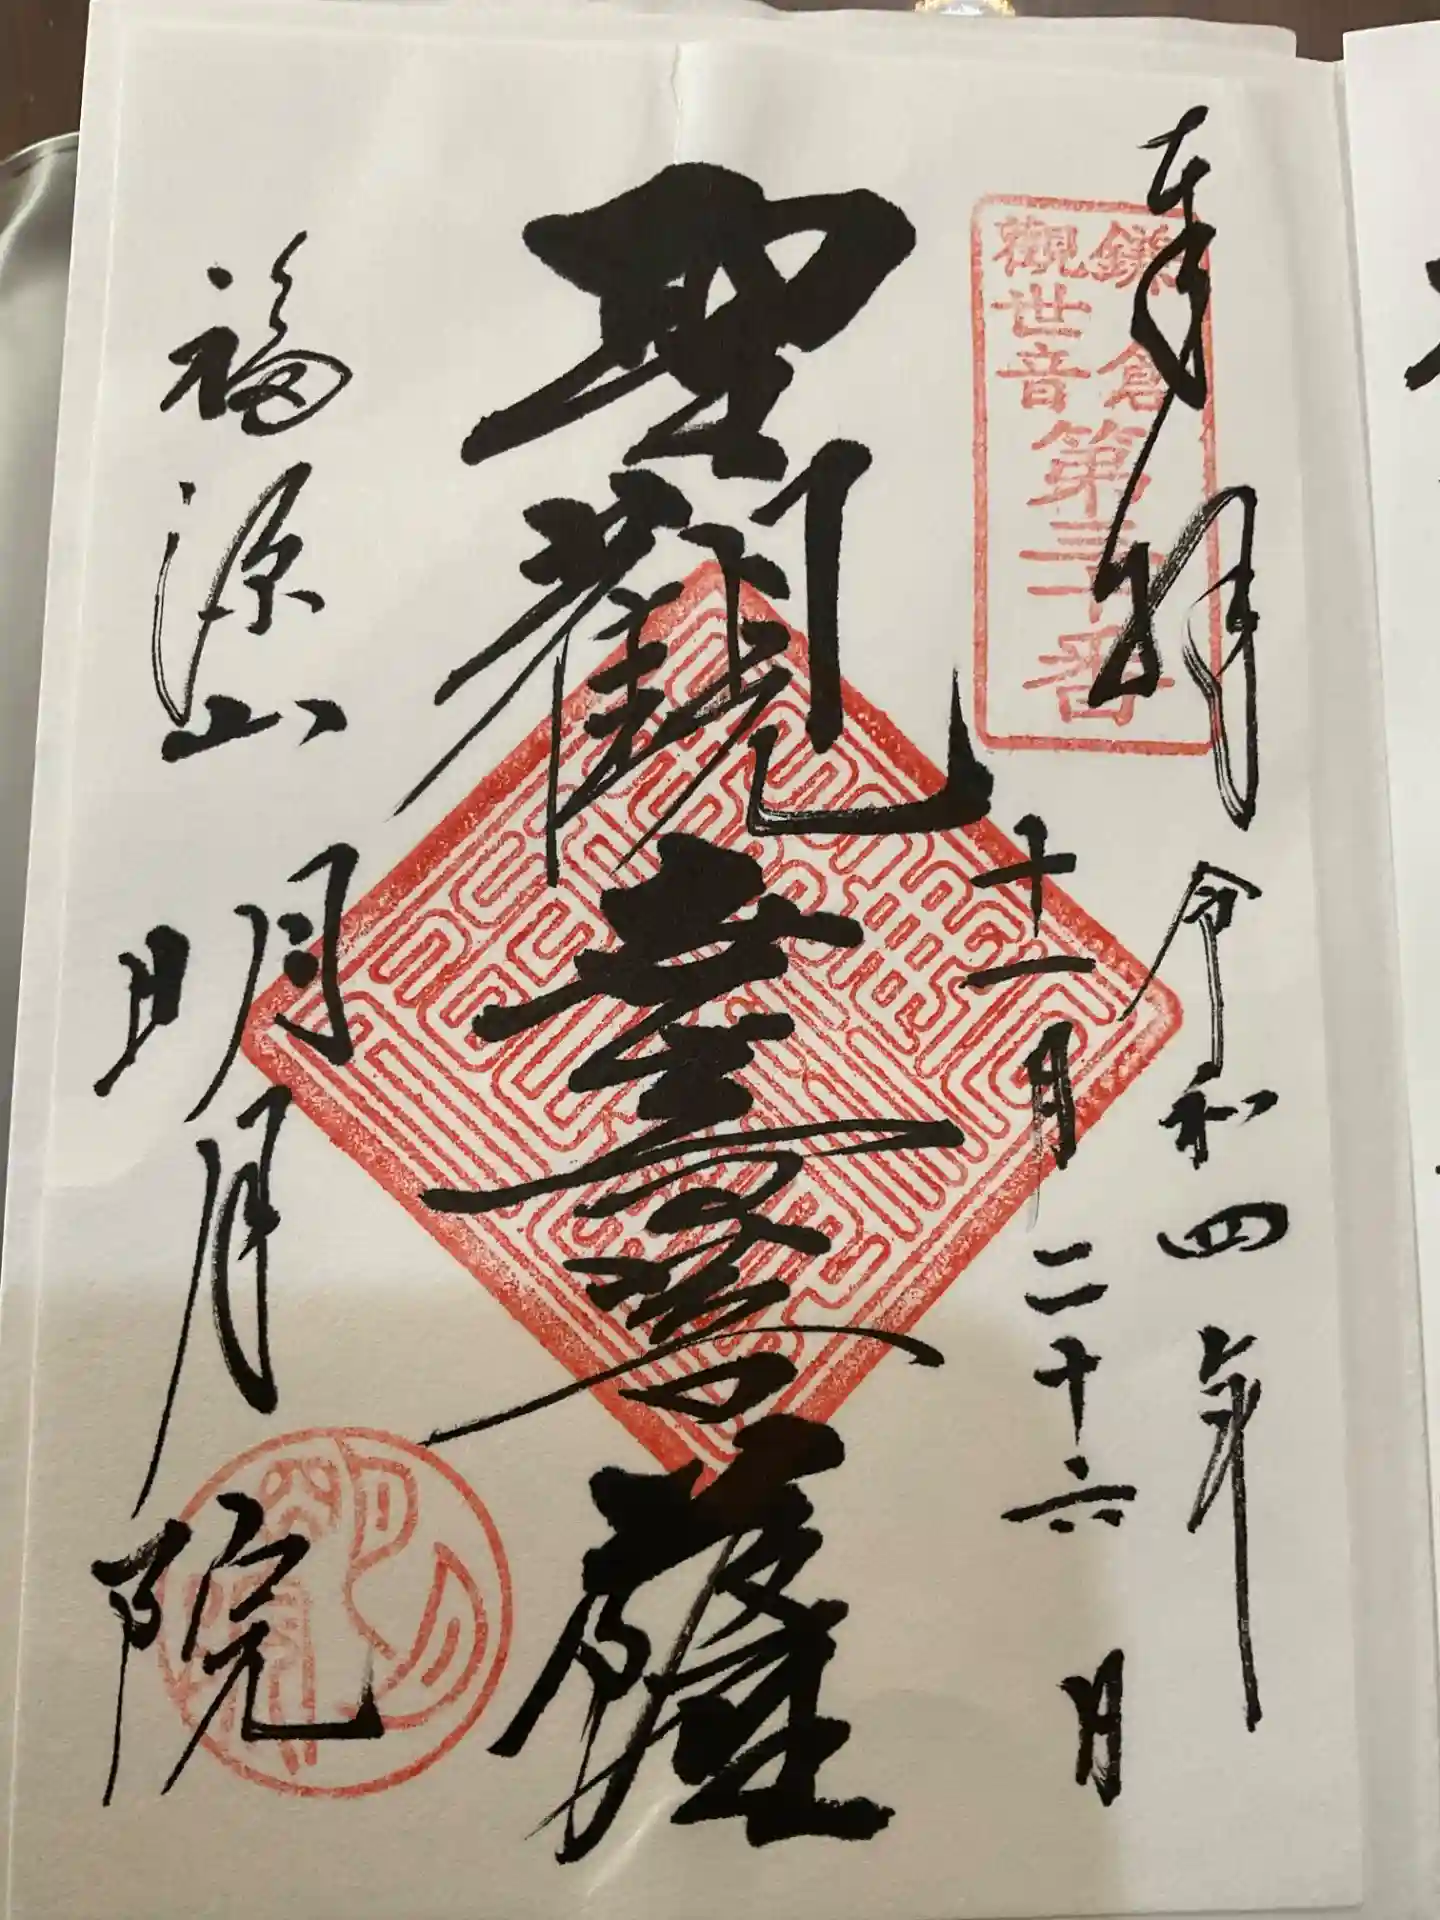 奉拝
令和四年
十一月二十六日
鎌倉
觀世音
第三十番
聖觀音菩薩
福源山
明月院